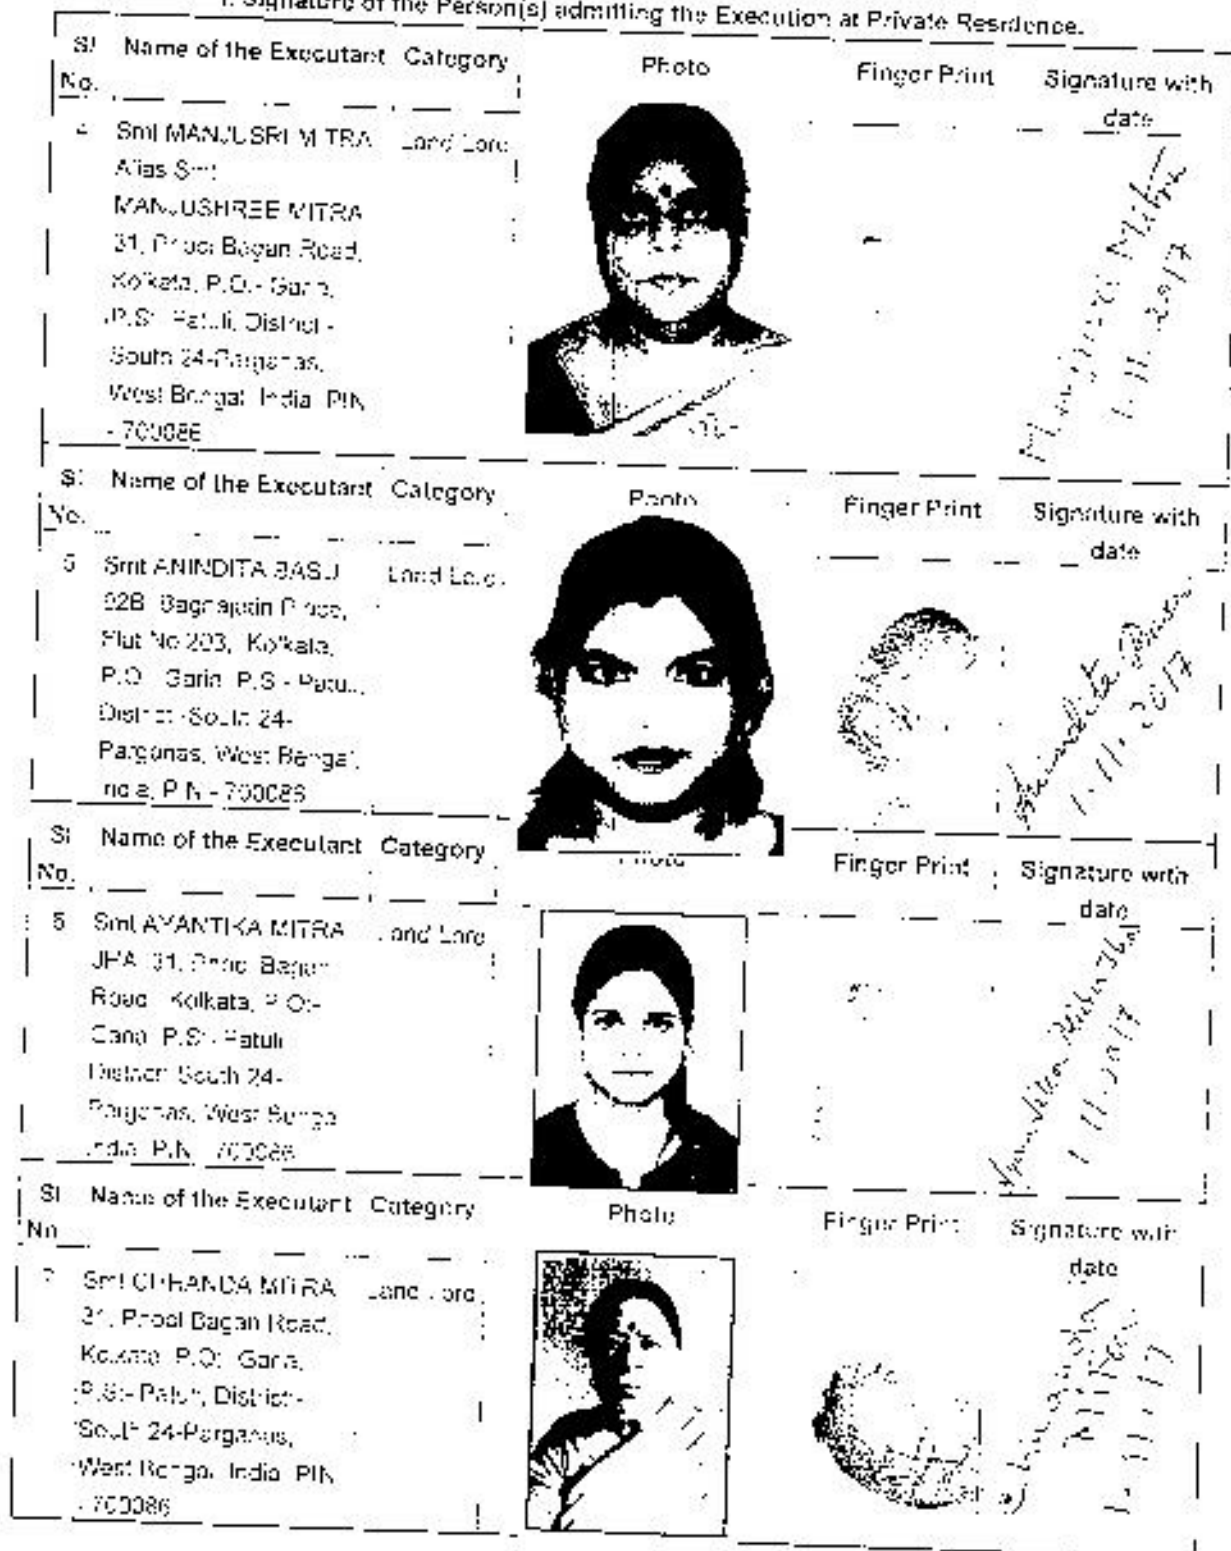 Signature of the Person(s) admitting the Execution at Private Residence.
Sl No. Name of the Executant Category Photo Finger Print Signature with date
4 Smt MANJUSRI MITRA Land Lord
Alias Smt
MANJUSHREE MITRA
31, Phool Bagan Road,
Kolkata, P.O:- Garia,
P.S:- Patuli, District:-
South 24-Parganas,
West Bengal, India, PIN
- 700086
Mitra
1.11.2017
Sl No. Name of the Executant Category Photo Finger Print Signature with date
5 Smt ANINDITA BASU Land Lord
92B, Baghajatin Place,
Flat No 203, Kolkata,
P.O:- Garia, P.S:- Patuli,
District:-South 24-
Parganas, West Bengal,
India, PIN - 700086
Anindita Basu
1.11.2017
Sl No. Name of the Executant Category Photo Finger Print Signature with date
6 Smt AYANTIKA MITRA Land Lord
JHA 31, Phool Bagan
Road, Kolkata, P.O:-
Garia, P.S:- Patuli
District:-South 24-
Parganas, West Bengal
India, PIN - 700086
1.11.2017
Sl No. Name of the Executant Category Photo Finger Print Signature with date
7 Smt CHHANDA MITRA Land Lord
31, Phool Bagan Road,
Kolkata, P.O:- Garia,
P.S:- Patuli, District:-
South 24-Parganas,
West Bengal, India, PIN
- 700086